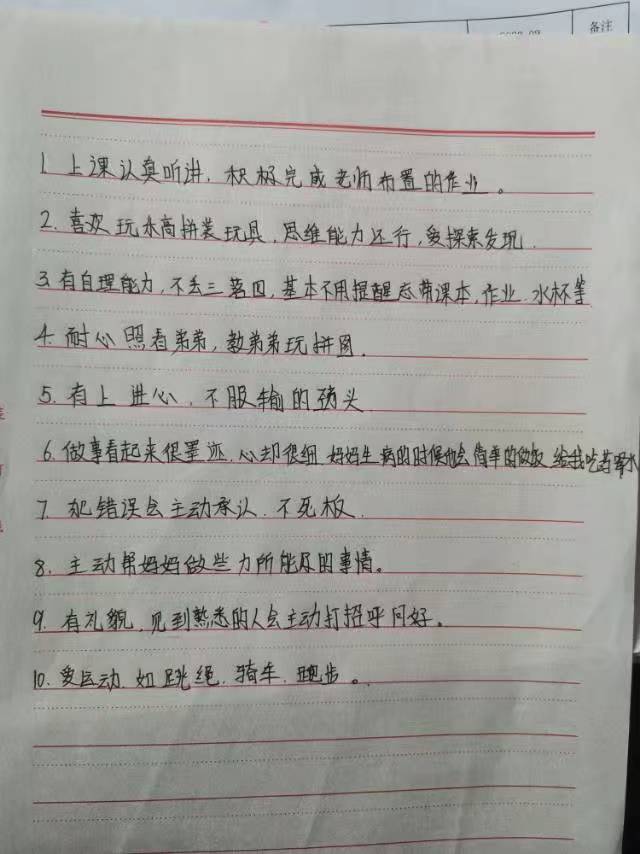 备注
1. 上课认真听讲, 积极完成老师布置的作业。
2. 喜欢玩木高拼装玩具, 思维能力还行, 爱探索发现.
3. 有自理能力, 不丢三落四, 基本不用提醒忘带课本, 作业. 水杯等
4. 耐心照看弟弟, 教弟弟玩拼图.
5. 有上进心, 不服输的劲头
6. 做事看起来很墨迹. 心却很细. 妈妈生病的时候他会简单的做饭 给我吃药 水
7. 犯错误会主动承认. 不死板.
8. 主动帮妈妈做些力所能及的事情。
9. 有礼貌, 见到熟悉的人会主动打招呼问好。
10. 爱运动 如跳绳. 骑车. 跑步。